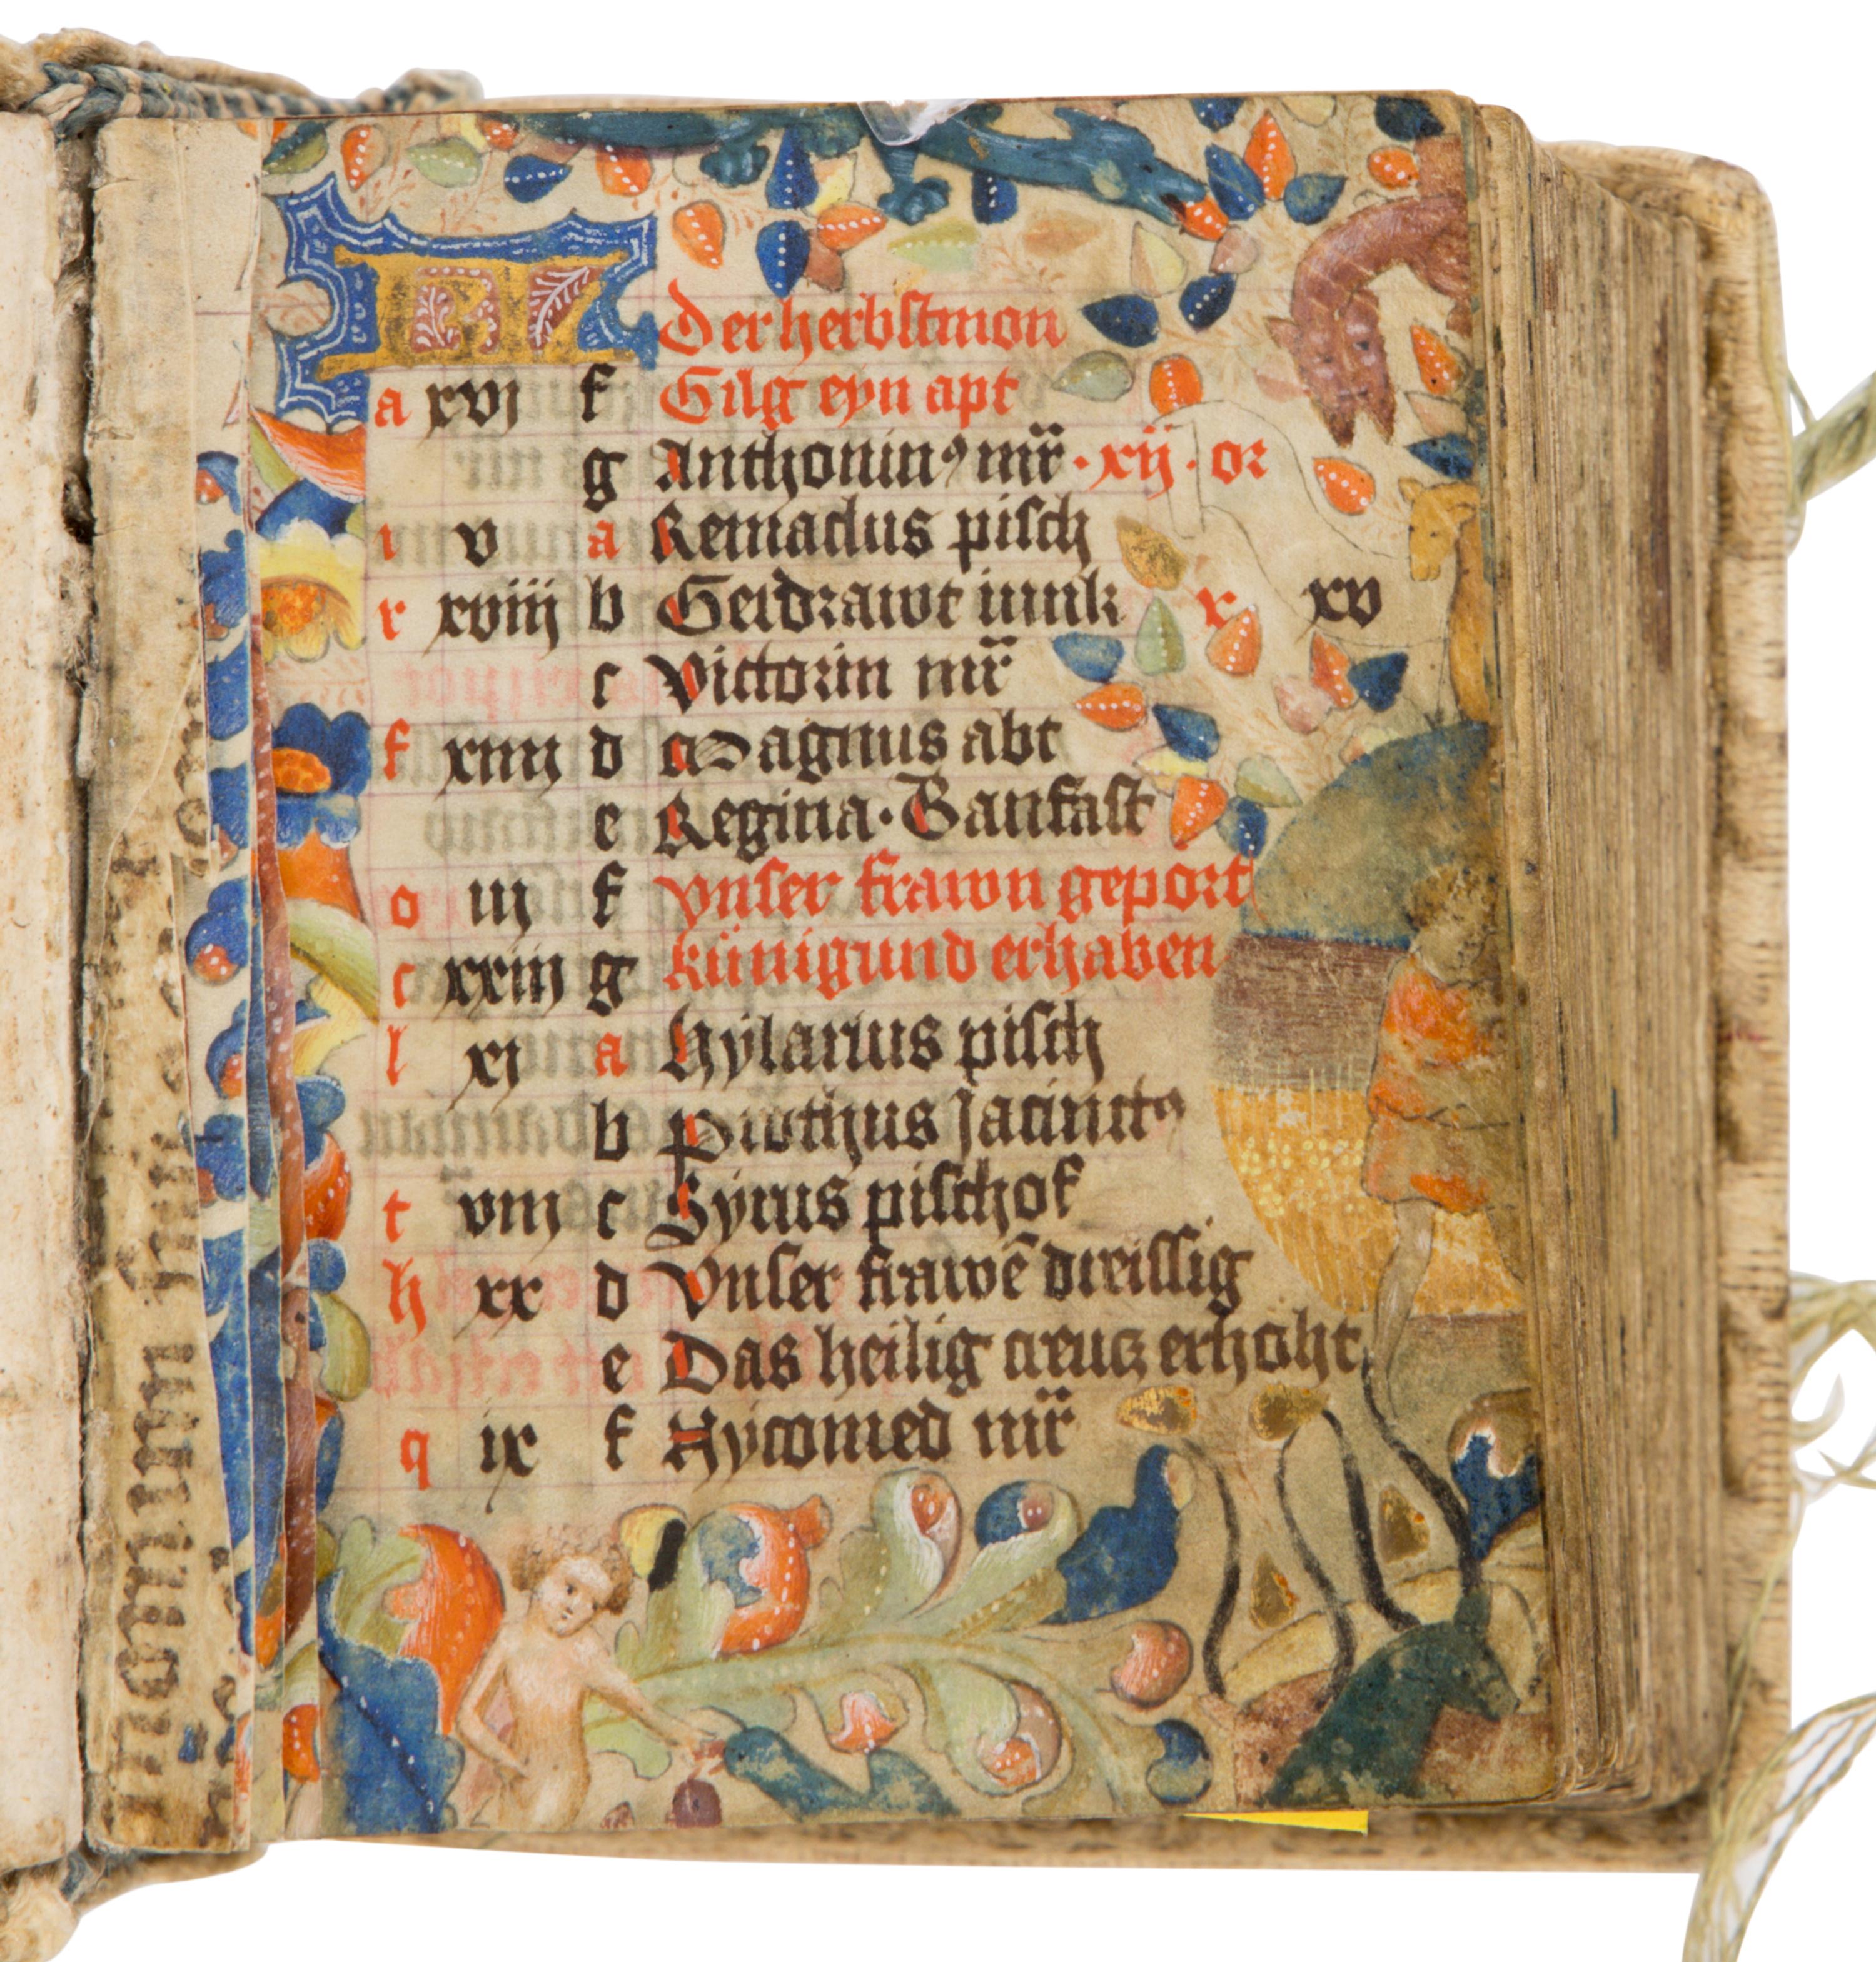 KL Der herbstmon
a xvj f Gilg eyn apt
g Anthoninꝰ mr̄ · xij · or
i v a Remaclus pisch
r xviij b Gerdrawt iunk x xv
c Victorin mr̄
f xiiij d Magnus abt
e Regina · Banfast
o iij f vnser frawn geport
c xxiij g künigund erhaben
l xj a hylarius pisch
b Prothus Jacinctꝰ
t viij c Syrus pischof
h xx d Vnser frawē dreissig
e Das heilig creucz erhöht
q ix f Nycomed mr̄